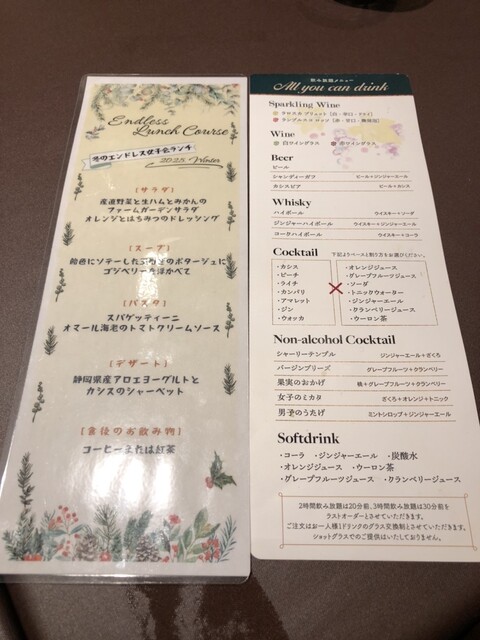 Endless
Lunch Course
冬のエンドレス女子会ランチ
2025 Winter
[サラダ]
産直野菜と生ハムとみかんの
ファームガーデンサラダ
オレンジとはちみつのドレッシング
[スープ]
飴色にソテーした玉ねぎのポタージュに
ゴジベリーを浮かべて
[パスタ]
スパゲッティーニ
オマール海老のトマトクリームソース
[デザート]
静岡県産アロエヨーグルトと
カシスのシャーベット
[食後のお飲み物]
コーヒーまたは紅茶
飲み放題メニュー
All you can drink
Sparkling Wine
Wine
白ワイングラス 赤ワイングラス
Beer
ビール
シャンディーガフ ビール+ジンジャーエール
カシスビア ビール+カシス
Whisky
ハイボール ウイスキー+ソーダ
ジンジャーハイボール ウイスキー+ジンジャーエール
コークハイボール ウイスキー+コーラ
Cocktail 下記よりベースと割り方をお選びください。
・カシス
・ピーチ
・ライチ
・カンパリ
・アマレット
・ジン
・ウォッカ
×
・オレンジジュース
・グレープフルーツジュース
・ソーダ
・トニックウォーター
・ジンジャーエール
・クランベリージュース
・ウーロン茶
Non-alcohol Cocktail
シャーリーテンプル ジンジャーエール+ざくろ
バージンブリーズ グレープフルーツ+クランベリー
果実のおかげ 桃+グレープフルーツ+クランベリー
女子のミカタ ざくろ+オレンジ+トニック
男子のうたげ ミントシロップ+ジンジャーエール
Softdrink
・コーラ ・ジンジャーエール ・炭酸水
・オレンジジュース ・ウーロン茶
・グレープフルーツジュース ・クランベリージュース
2時間飲み放題は20分前、3時間飲み放題は30分前を
ラストオーダーとさせていただきます。
ご注文はお一人様1ドリンクのグラス交換制とさせていただきます。
ショットグラスでのご提供はいたしておりません。